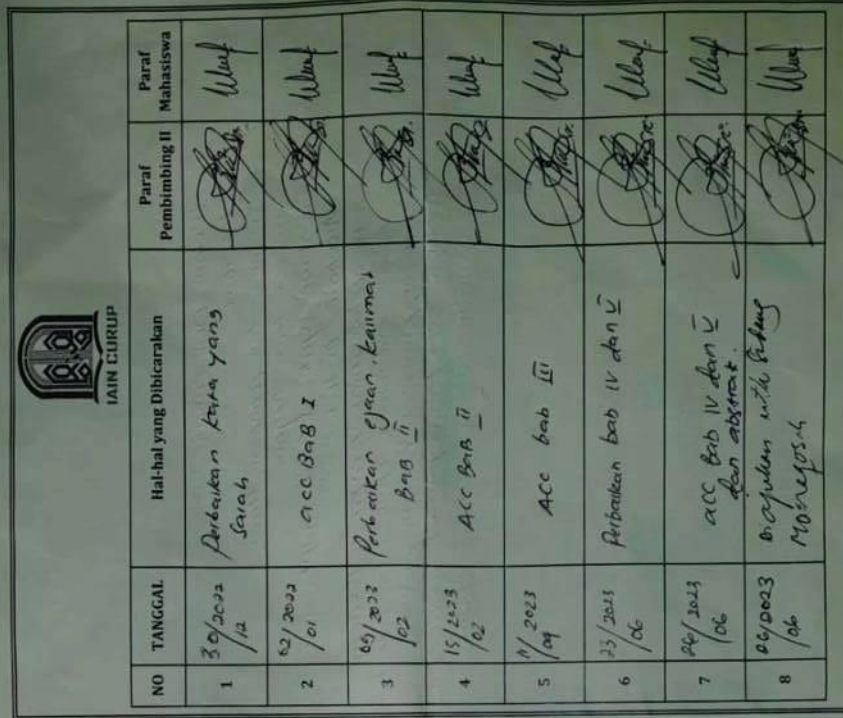 IAIN CURUP
NO TANGGAL Hal-hal yang Dibicarakan Paraf Pembimbing II Paraf Mahasiswa
1 30/2022 Perbaikan kata yang
/12 salah
2 02/2022 acc BaB I
/01
3 /2023 Perbaikan ejaan, kalimat
/02 BAB II
4 15/2023 ACC BAB II
/02
5 11/2023 ACC bab III
/04
6 23/2023 Perbaikan bab IV dan V
/06
7 26/2023 acc Bab IV dan V
/06 dan abstrak.
8 /2023 Diajukan utk Sidang
/06